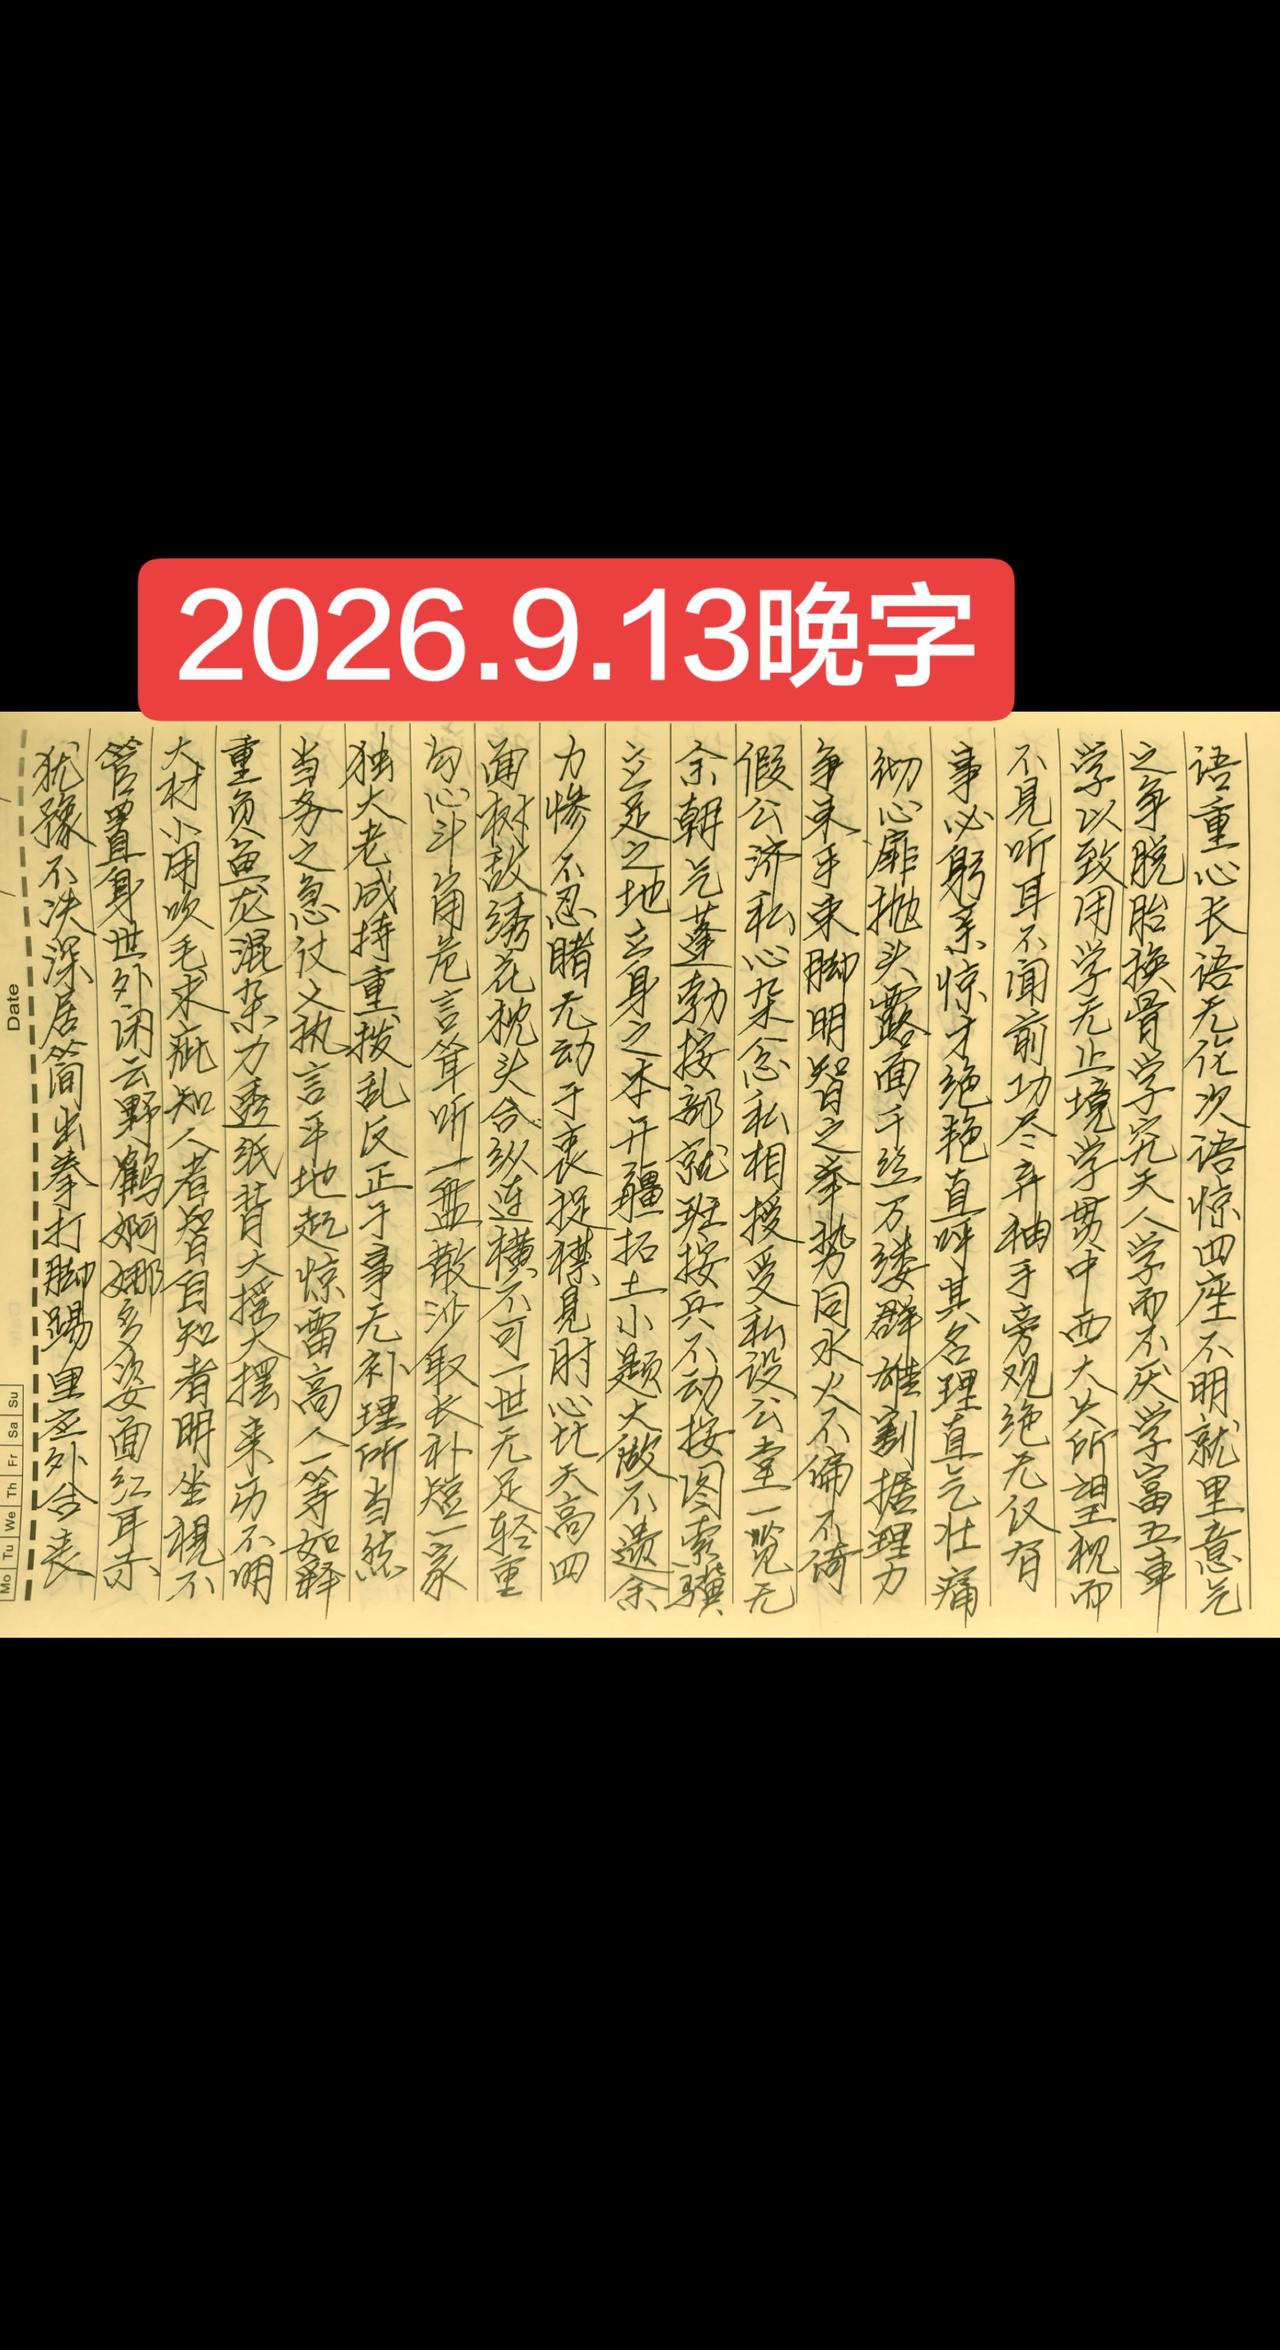 2026.9.13晚字
语重心长语无伦次语惊四座不明就里意气
之争脱胎换骨学究天人学而不厌学富五车
学以致用学无止境学贯中西大失所望视而
不见听耳不闻前功尽弃袖手旁观绝无仅有
事必躬亲惊才绝艳直呼其名理直气壮痛
彻心扉抛头露面千丝万缕群雄割据理力
争束手束脚明智之举势同水火不偏不倚
假公济私心杂念私相授受私设公堂一览无
余朝气蓬勃按部就班按兵不动按图索骥
立足之地立身之本开疆拓土小题大做不遗余
力惨不忍睹无动于衷捉襟见肘心比天高四
面树敌绣花枕头合纵连横不可一世无足轻重
勾心斗角危言耸听一盘散沙取长补短一家
独大老成持重拨乱反正于事无补理所当然
当务之急仗义执言平地起惊雷高人一等如释
重负鱼龙混杂力透纸背大摇大摆来历不明
大材小用吹毛求疵知人者智自知者明坐视不
管置身世外闲云野鹤婀娜多姿面红耳赤
犹豫不决深居简出拳打脚踢里应外合丧
Date
Mo Tu We Th Fr Sa Su